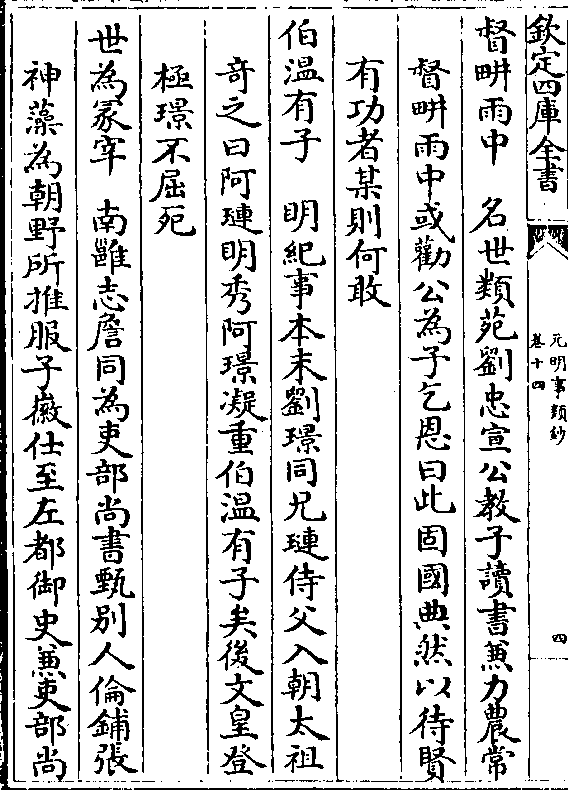 欽定四庫全書
元明事類鈔
卷十四
四
督畊雨中　名世類苑劉忠宣公教子讀書兼力農常
督畊雨中或勸公為子乞恩曰此固國典然以待賢
有功者某則何敢
伯溫有子　明紀事本末劉璟同兄璉侍父入朝太祖
奇之曰阿璉明秀阿璟凝重伯溫有子矣後文皇登
極璟不屈死
世為冢宰　南雝志詹同為吏部尚書甄别人倫鋪張
神藻為朝野所推服子徽仕至左都御史兼吏部尚